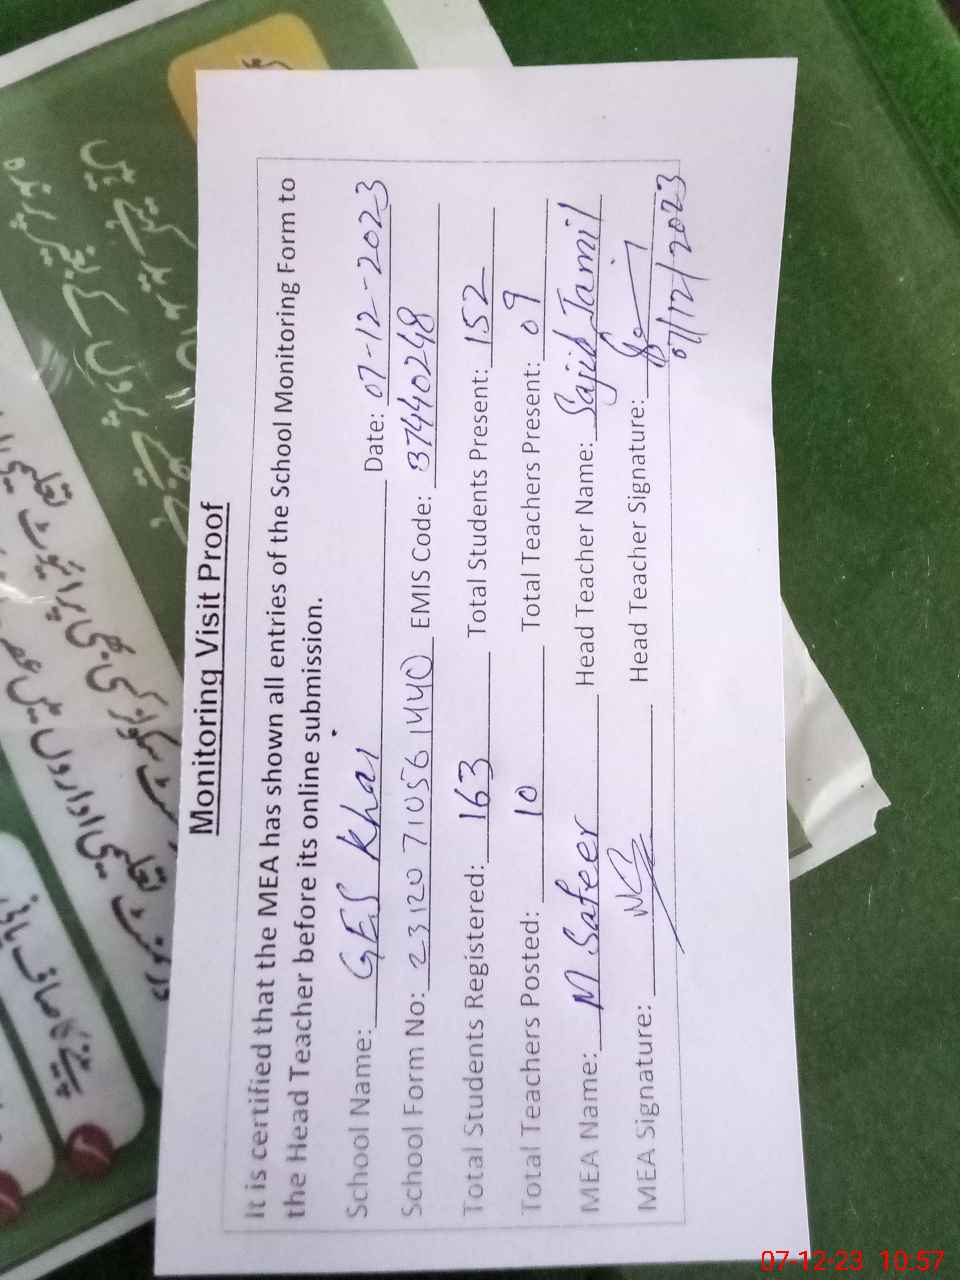 Monitoring Visit Proof
It is certified that the MEA has shown all entries of the School Monitoring Form to
the Head Teacher before its online submission.
School Name: GES Khai Date: 07-12-2023
School Form No: 23120710561440 EMIS Code: 37440248
Total Students Registered: 163 Total Students Present: 152
Total Teachers Posted: 10 Total Teachers Present: 09
MEA Name: M Safeer Head Teacher Name: Sajid Jamil
MEA Signature: Head Teacher Signature:
07/12/2023
پینے کا صاف پانی
07-12-23 10:57